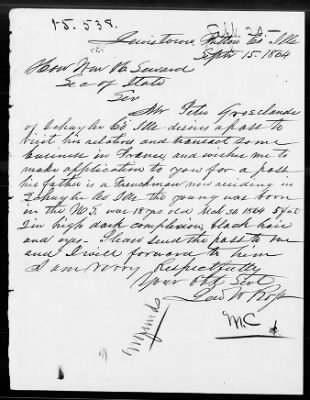 15.538.
Lewistown, Fulton Co Ills
Septr 15. 1864
Hon Wm H Seward
Sec of State
Sir
Mr Peter Groselande
of Schuyler Co Ills desires a pass to
visit his relatives and transact some
business in France, and wishes me to
make application to you for a pass
his father is a Frenchman now residing in
Schuyler Co Ills the young was born
in the U.S. was 18 yrs old Mch 30 1864 5 feet
in high dark complexion, black hair
and eyes. Please send the pass to me
and I will forward to him
I am very Respectfully
Your Obt Svt
Lew W Ross
M.C